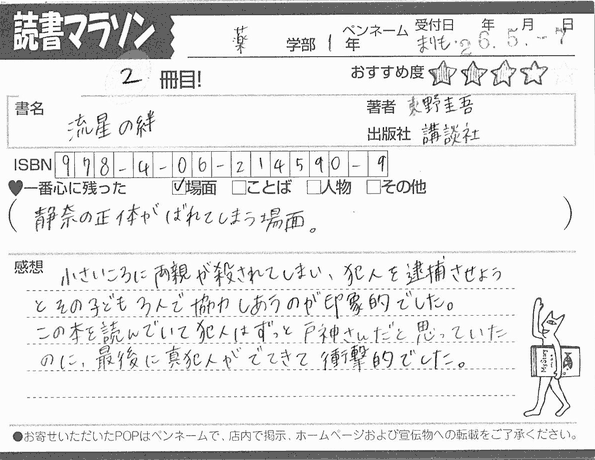 読書マラソン
薬 学部 1 年 ペンネーム まりも 受付日 '26.5.-7 年 月 日
2 冊目!
おすすめ度 ☆☆☆☆☆
書名 流星の絆
著者 東野圭吾
出版社 講談社
ISBN 978-4-06-214590-9
♥一番心に残った ☑場面 □ことば □人物 □その他
(静奈の正体がばれてしまう場面。)
感想 小さいころに両親が殺されてしまい、犯人を逮捕させよう
とその子ども3人で協力しあうのが印象的でした。
この本を読んでいて犯人はずっと戸神さんだと思っていた
のに、最後に真犯人がでてきて衝撃的でした。
●お寄せいただいたPOPはペンネームで、店内で掲示、ホームページおよび宣伝物への転載をご了承ください。